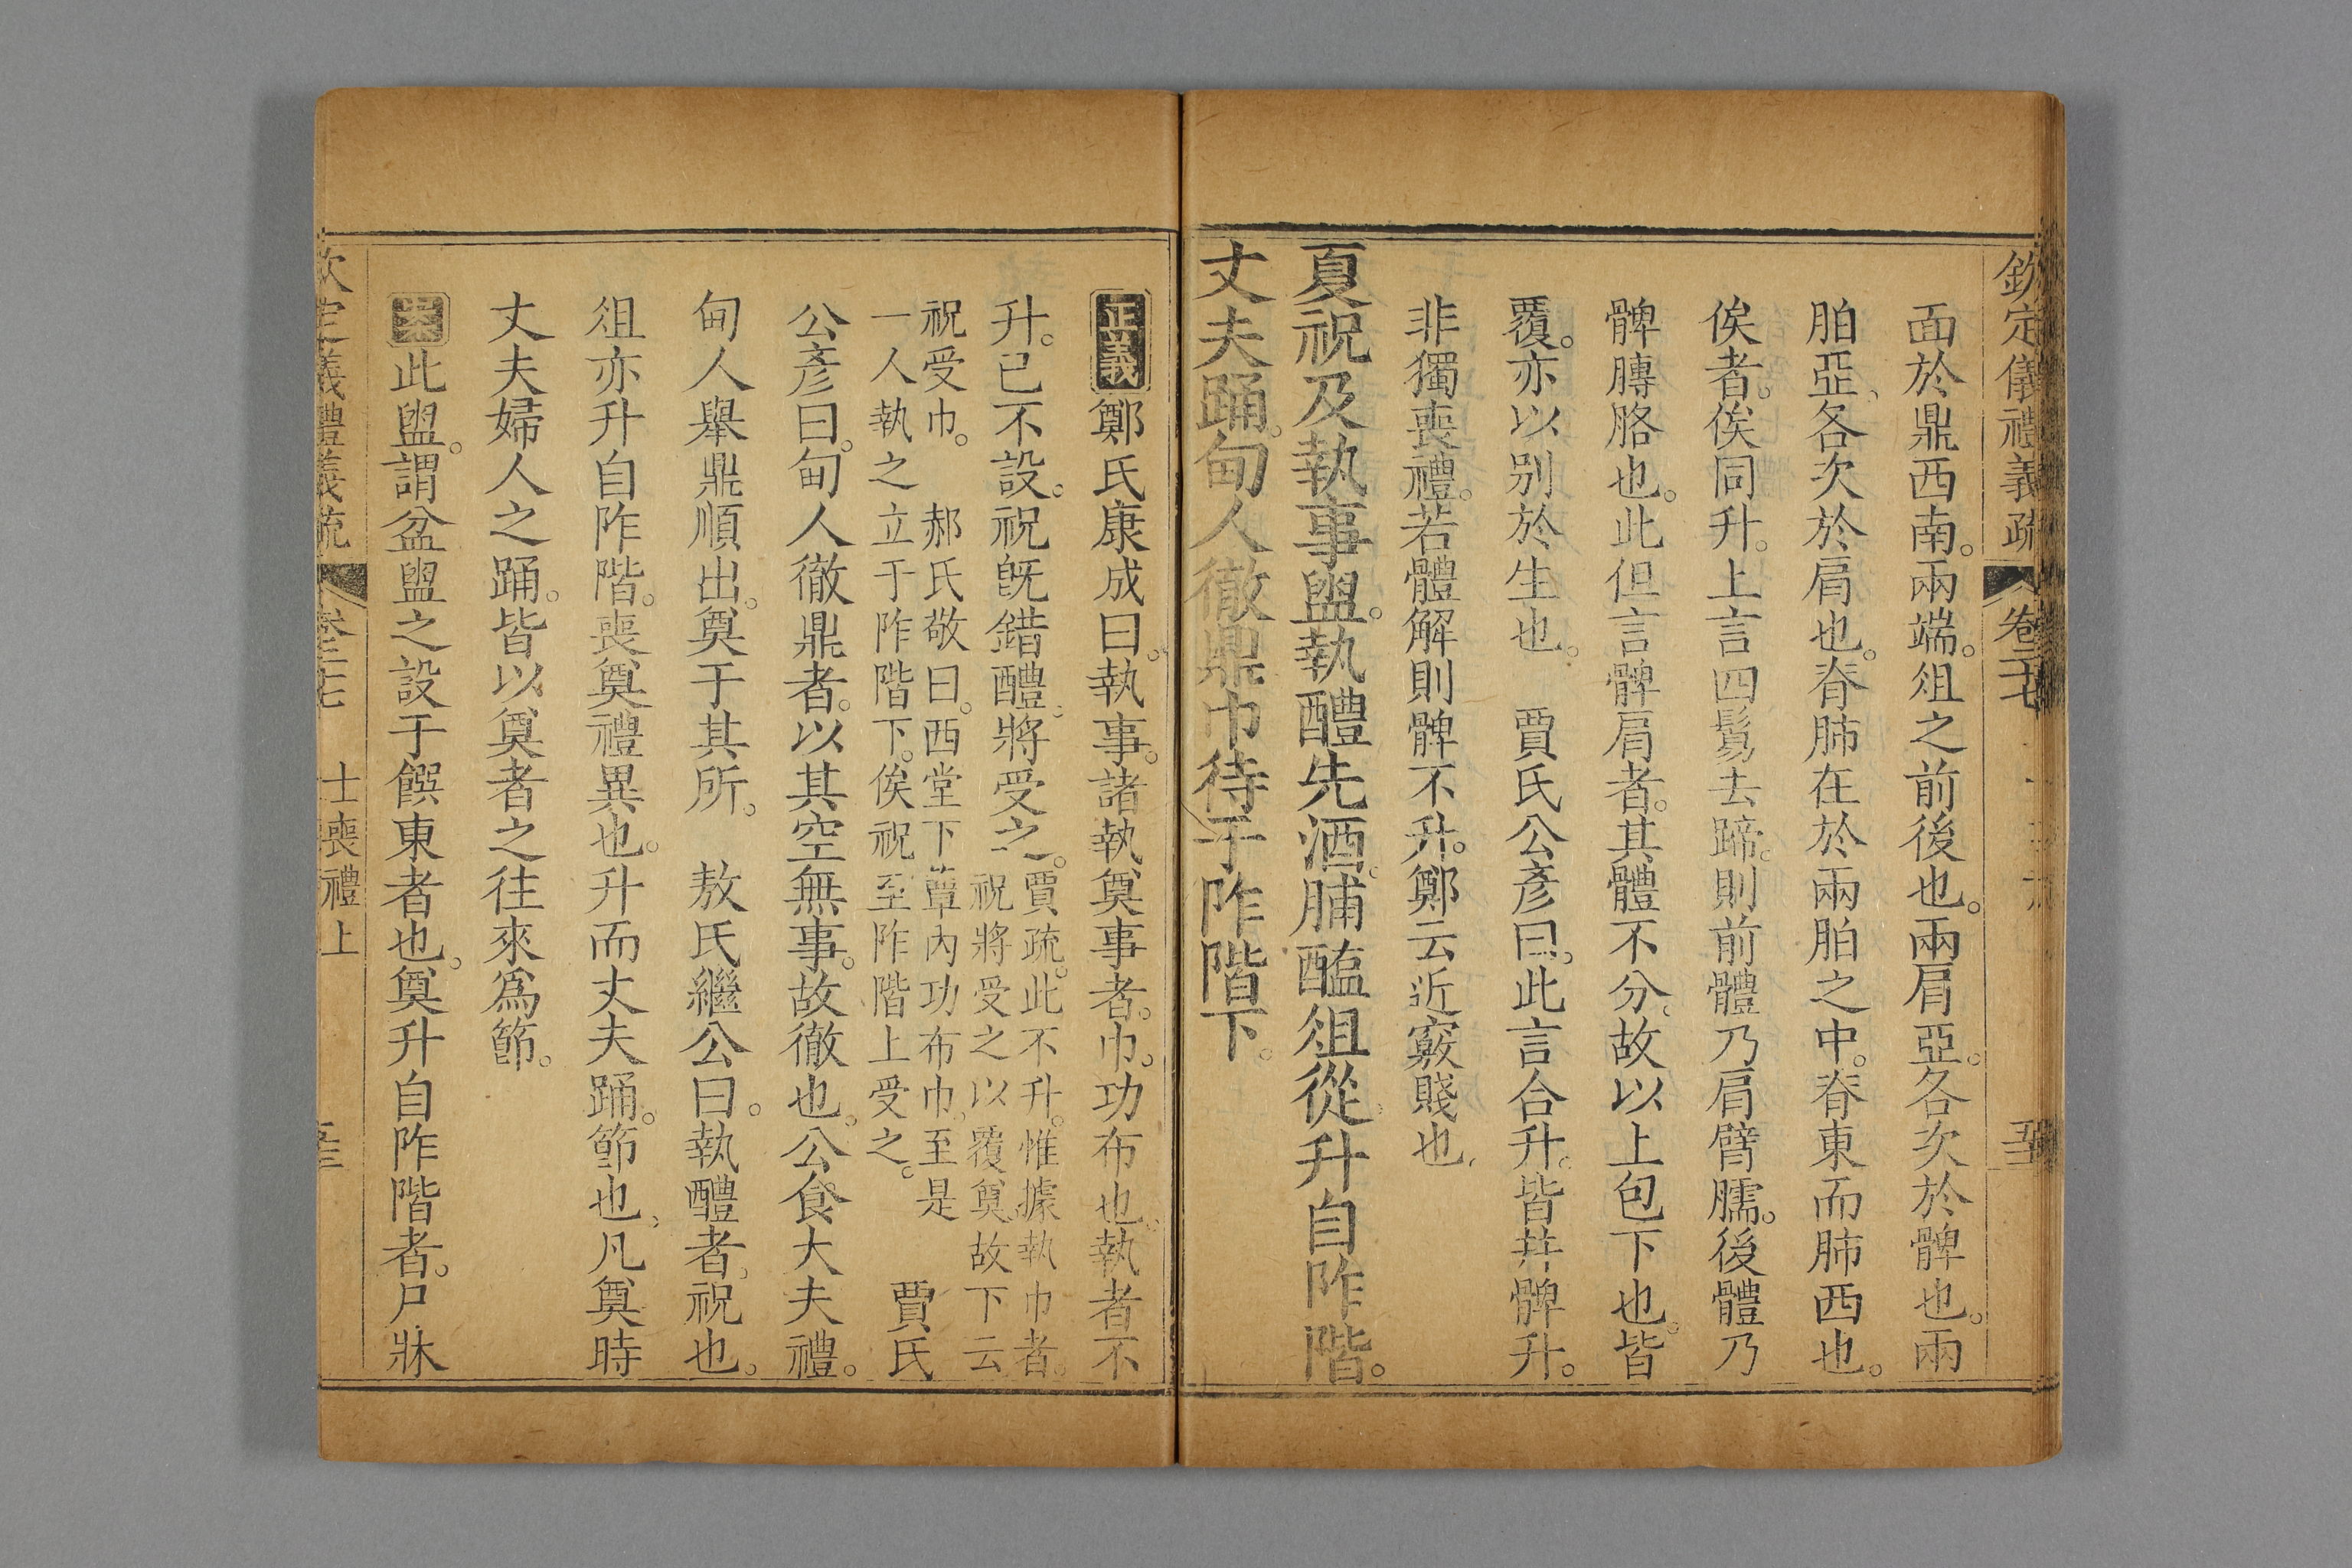 欽定儀禮義疏 卷二十七
面於鼎西南。兩端。俎之前後也。兩肩亞。各次於髀也。兩
胉亞、各次於肩也。脊肺在於兩胉之中。脊東而肺西也。
俟者。俟同升。上言四鬄去蹄。則前體乃肩臂臑。後體乃
髀膊胳也。此但言髀肩者。其體不分、故以上包下也。皆
覆。亦以别於生也。 賈氏公彥曰。此言合升。皆并髀升。
非獨喪禮。若體解則髀不升。鄭云近竅賤也、
夏祝及執事盥。執醴先酒。脯醢俎從。升自阼階。
丈夫踊。甸人徹鼎巾待于阼階下。
正義鄭氏康成曰。執事。諸執奠事者。巾。功布也。執者不
升。已不設。祝旣錯醴。將受之。賈疏。此不升。惟據執巾者。祝將受之以覆奠。故下云
祝受巾。 郝氏敬曰。西堂下簟内功布巾、至是一人執之立于阼階下。俟祝至阼階上受之。 賈氏
公彥曰。甸人徹鼎者。以其空無事。故徹也。公食大夫禮。
甸人舉鼎順出。奠于其所。 敖氏繼公曰。執醴者、祝也。
俎亦升自阼階。喪奠禮異也。升而丈夫踊。節也、凡奠時
丈夫婦人之踊。皆以奠者之往來爲節。
案此盥。謂盆盥之設于饌東者也。奠升自阼階者。尸牀
欽定儀禮義疏 卷二十七 士喪禮上